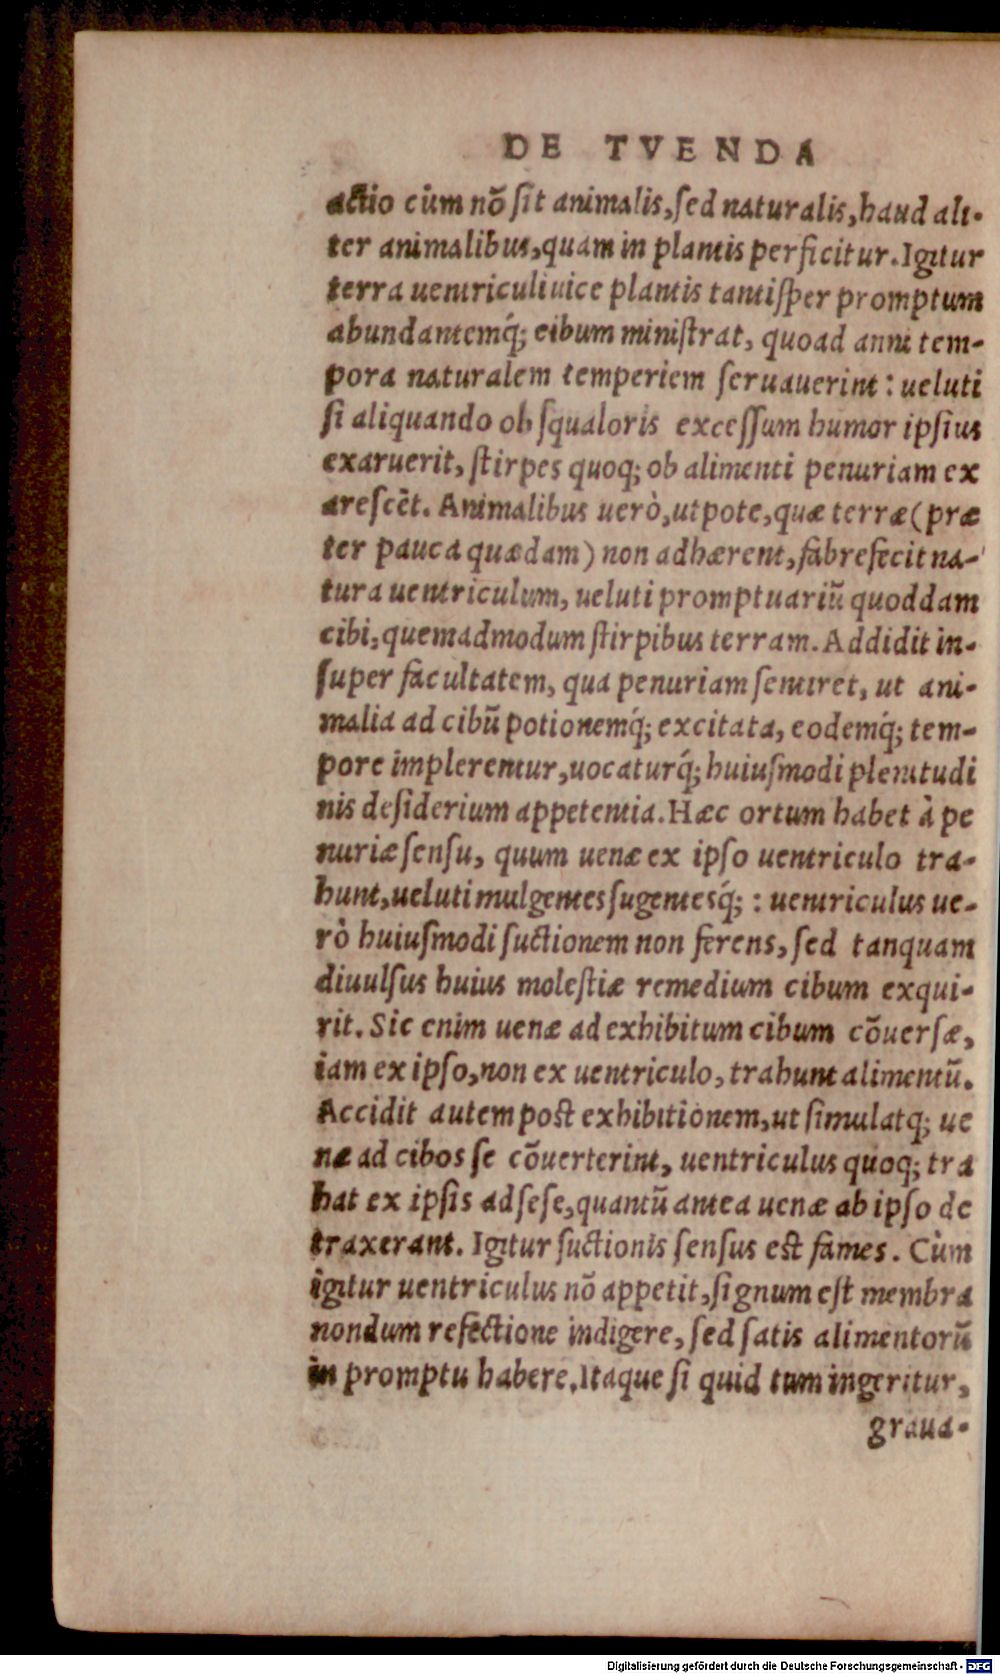 DE TVENDA
actio cùm nõ ſit animalis, ſed naturalis, haud ali-
ter animalibus, quam in plantis perficitur. Igitur
terra uentriculi uice plantis tantiſper promptum
abundantemq́; cibum miniſtrat, quoad anni tem-
pora naturalem temperiem ſeruauerint: ueluti
ſi aliquando ob ſqualoris exceſſum humor ipſius
exaruerit, ſtirpes quoq; ob alimenti penuriam ex
areſcẽt. Animalibus uerò, utpote, quæ terræ (præ
ter pauca quædam) non adhærent, fabrefecit na-
tura uentriculum, ueluti promptuariũ quoddam
cibi, quemadmodum ſtirpibus terram. Addidit in-
ſuper facultatem, qua penuriam ſentiret, ut ani-
malia ad cibũ potionemq́; excitata, eodemq́; tem-
pore implerentur, uocaturq́; huiuſmodi plenitudi
nis deſiderium appetentia. Hæc ortum habet à pe
nuriæ ſenſu, quum uenæ ex ipſo uentriculo tra-
hunt, ueluti mulgentes ſugentesq́; : uentriculus ue-
rò huiuſmodi ſuctionem non ferens, ſed tanquam
diuulſus huius moleſtiæ remedium cibum exqui-
rit. Sic enim uenæ ad exhibitum cibum cõuerſæ,
iam ex ipſo, non ex uentriculo, trahunt alimentũ.
Accidit autem poſt exhibitionem, ut ſimulatq; ue
næ ad cibos ſe cõuerterint, uentriculus quoq; tra
hat ex ipſis ad ſeſe, quantũ antea uenæ ab ipſo de
traxerant. Igitur ſuctionis ſenſus eſt fames. Cùm
igitur uentriculus nõ appetit, ſignum eſt membra
nondum refectione indigere, ſed ſatis alimentorũ
in promptu habere. Itaque ſi quid tum ingeritur,
graua-
Digitalisierung gefördert durch die Deutsche Forschungsgemeinschaft - DFG